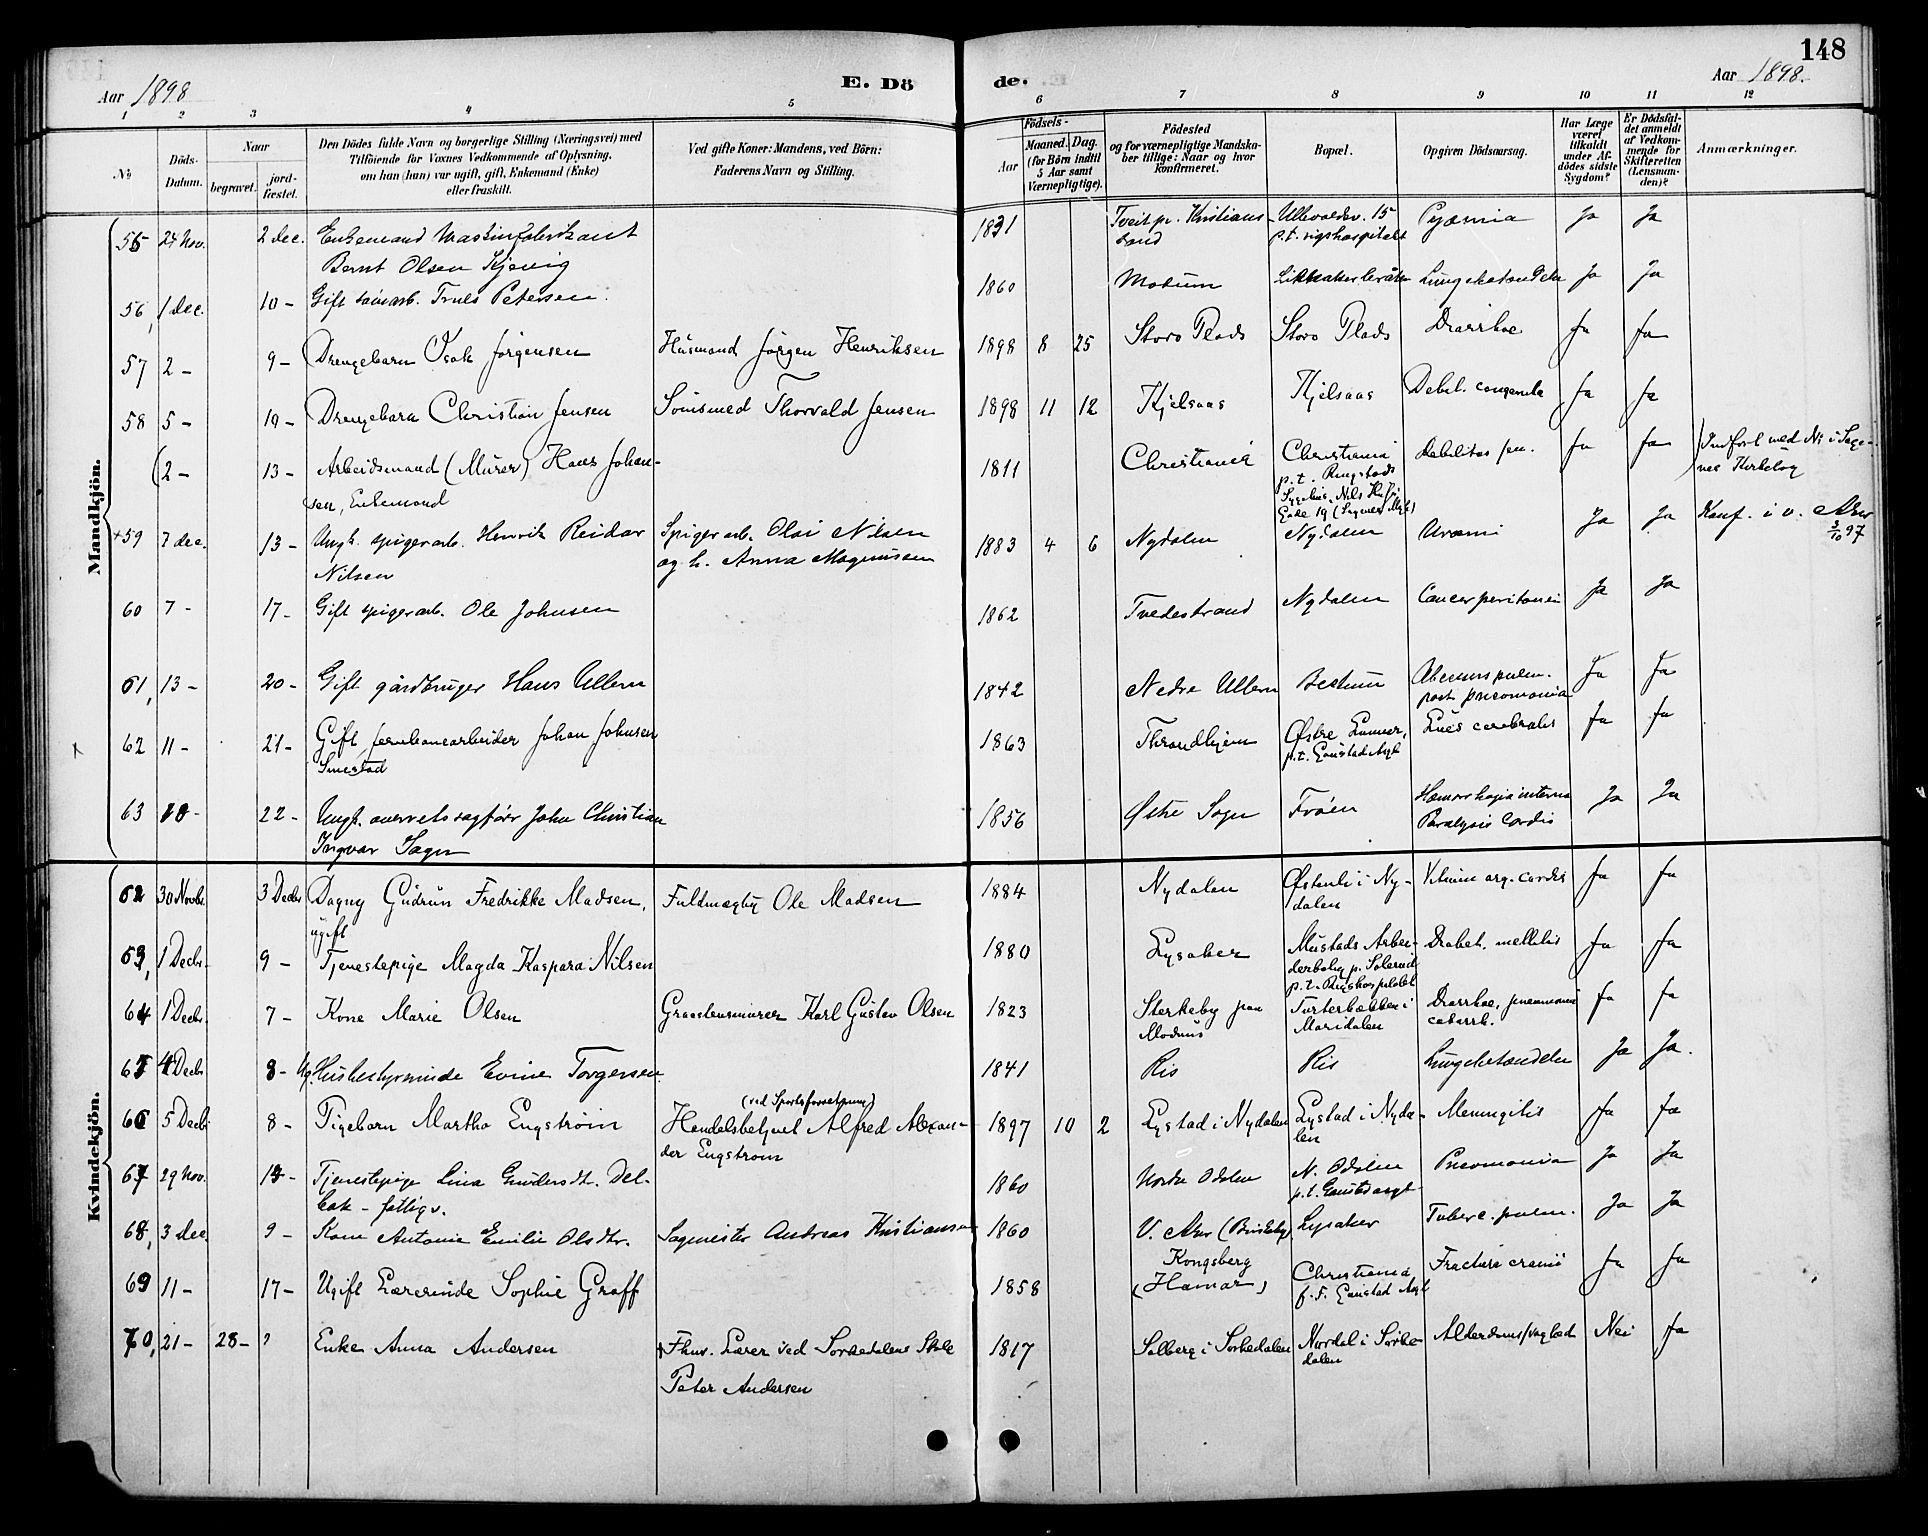 148
Aar 1898
E. Dö
de.
Aar 1898.
1 2 3 4 5 6 7 8 9 10 11 12
No
Döds-
Datum.
Naar
begravet.
jord-
fæstet.
Den Dödes fulde Navn og borgerlige Stilling (Næringsvei) med
Tilföiende for Voxnes Vedkommende af Oplysning,
om han (hun) var ugift, gift, Enkemand (Enke)
eller fraskilt.
Ved gifte Koner: Mandens, ved Börn:
Faderens Navn og Stilling.
Födsels-
Aar
Maaned. Dag.
(for Börn indtil
5 Aar samt
Værnepligtige).
Födested
og for værnepligtige Mandska-
ber tillige: Naar og hvor
konfirmeret.
Bopæl.
Opgiven Dödsaarsag.
Har Læge
været
tilkaldt
under Af-
dödes sidste
Sygdom?
Er Dödsfal-
det anmeldt
af Vedkom-
mende for
Skifteretten
(Lensman-
den)?
Anmærkninger.
Mandkjön.
55 24 Nov. 2 Dec. Enkemand Maskinfabrikant 1831 Tveit pr. Kristians- Ullevoldsv. 15 Pyæmia Ja Ja
Bernt Olsen Kjevig sand p.t. rigshospitalet
56, 1 dec. 10- Gift Petersen. 1860 Modum Ja Ja
57 2- 9- Drengebarn Isak Jörgensen Husmand Jörgen Henriksen 1898 8 25 Storo Plads Storo Plads Diarrhoe Ja Ja
58 5- 19- Drengebarn Christian Jensen Thorvald Jensen 1898 11 12 Kjelsaas Kjelsaas Debil. congenita Ja Ja
(2- 13- Arbeidsmand (Murer) Hans Johan- 1811 Christiania Christiania Debilitas sen. Ja Ja Indfört med No i Sage-
sen, Enkemand p.t. Ringstads nes Kirkebog
Gade 19 (Sagenes Mgh)
+59 7 dec. 13- Ungk. spigerarb. Henrik Reidar Spigerarb. Olai Nilsen 1883 4 6 Nydalen Nydalen Uræmi Ja Ja Konf. i V. Aker
Nilsen og h. Anna Magnussen 3/10 97
60 7- 17- Gift spigerarb. Ole Johnsen 1862 Tvedestrand Nydalen Cancer peritonei Ja Ja
61, 13- 20- Gift gårdbruger Hans Ullern 1842 Nedre Ullern Bestum Abcessus pulm. Ja Ja
post pneumonia
x 62 11- 21- Gift jernbanearbeider Johan Johnsen 1863 Throndhjem Østre Lunner, Lues cerebralis Ja Ja
Smestad p.t. Gaustad Asyl
63 10- 22- Ungk. overretssagförer John Christian 1856 Østre Sogn Fröen Hæmorrhagia interna Ja Ja
Ingvar Sagen Paralysis Cordis
Kvindekjön.
62 30 Novbr. 3 Decbr Dagny Gudrun Fredrikke Madsen, Fuldmægtig Ole Madsen 1884 Nydalen Østenli i Ny- Vitium org. cordis Ja Ja
ugift dalen
63, 1 Decbr. 9- Tjenestepige Magda Kaspara Nilsen 1880 Lysaker Mustads Arbei- Diabet. mellitis Ja Ja
derbolig p. Sollerud
p.t. Rigshospitalet
64 1 Decbr. 7- Kone Marie Olsen Graastensmurer Karl Gustav Olsen 1823 Sterkeby paa Turterbakken i Diarrhoe, pneumoni Ja Ja
Modum Maridalen catarrh.
65 4 Decbr 8- Ug. Husbestyrerinde Evine Torgersen. 1841 Ris Ris Lungebetændelse Ja Ja.
66 5 Decbr 8- Pigebarn Martha Engström (ved Sportsforretning) 1897 10 2 Lystad i Nydalen Lystad i Nyda- Meningitis Ja Ja
Handelsbetjent Alfred Alexan- len
der Engström
67 29 Nov. Tjenestepige Lina Gundersdt. Del- 1860 Nordre Odalen N. Odalen Pneomonia Ja Ja
bak - fattigv. p.t. Gaustad asyl
68, 3 dec. 9- Kone Antonie Emilie Olsdtr. Sagmester Andreas Kristiansen 1860 V. Aker (Briskeby) Lysaker Tuberc. pulm. Ja Ja
69 11- 17- Ugift Lærerinde Sophie Graff 1858 Kongsberg Christiania Fractura cranii Ja Ja
(Hamar) p.t. Gaustad Asyl
70, 21- 28- ? Enke Anna Andersen Fhv. Lærer ved Sörkedalens Skole 1817 Solberg i Sörkedalen Nordal i Sörke- Alderdomssvaghed Nei Ja
Peter Andersen dalen